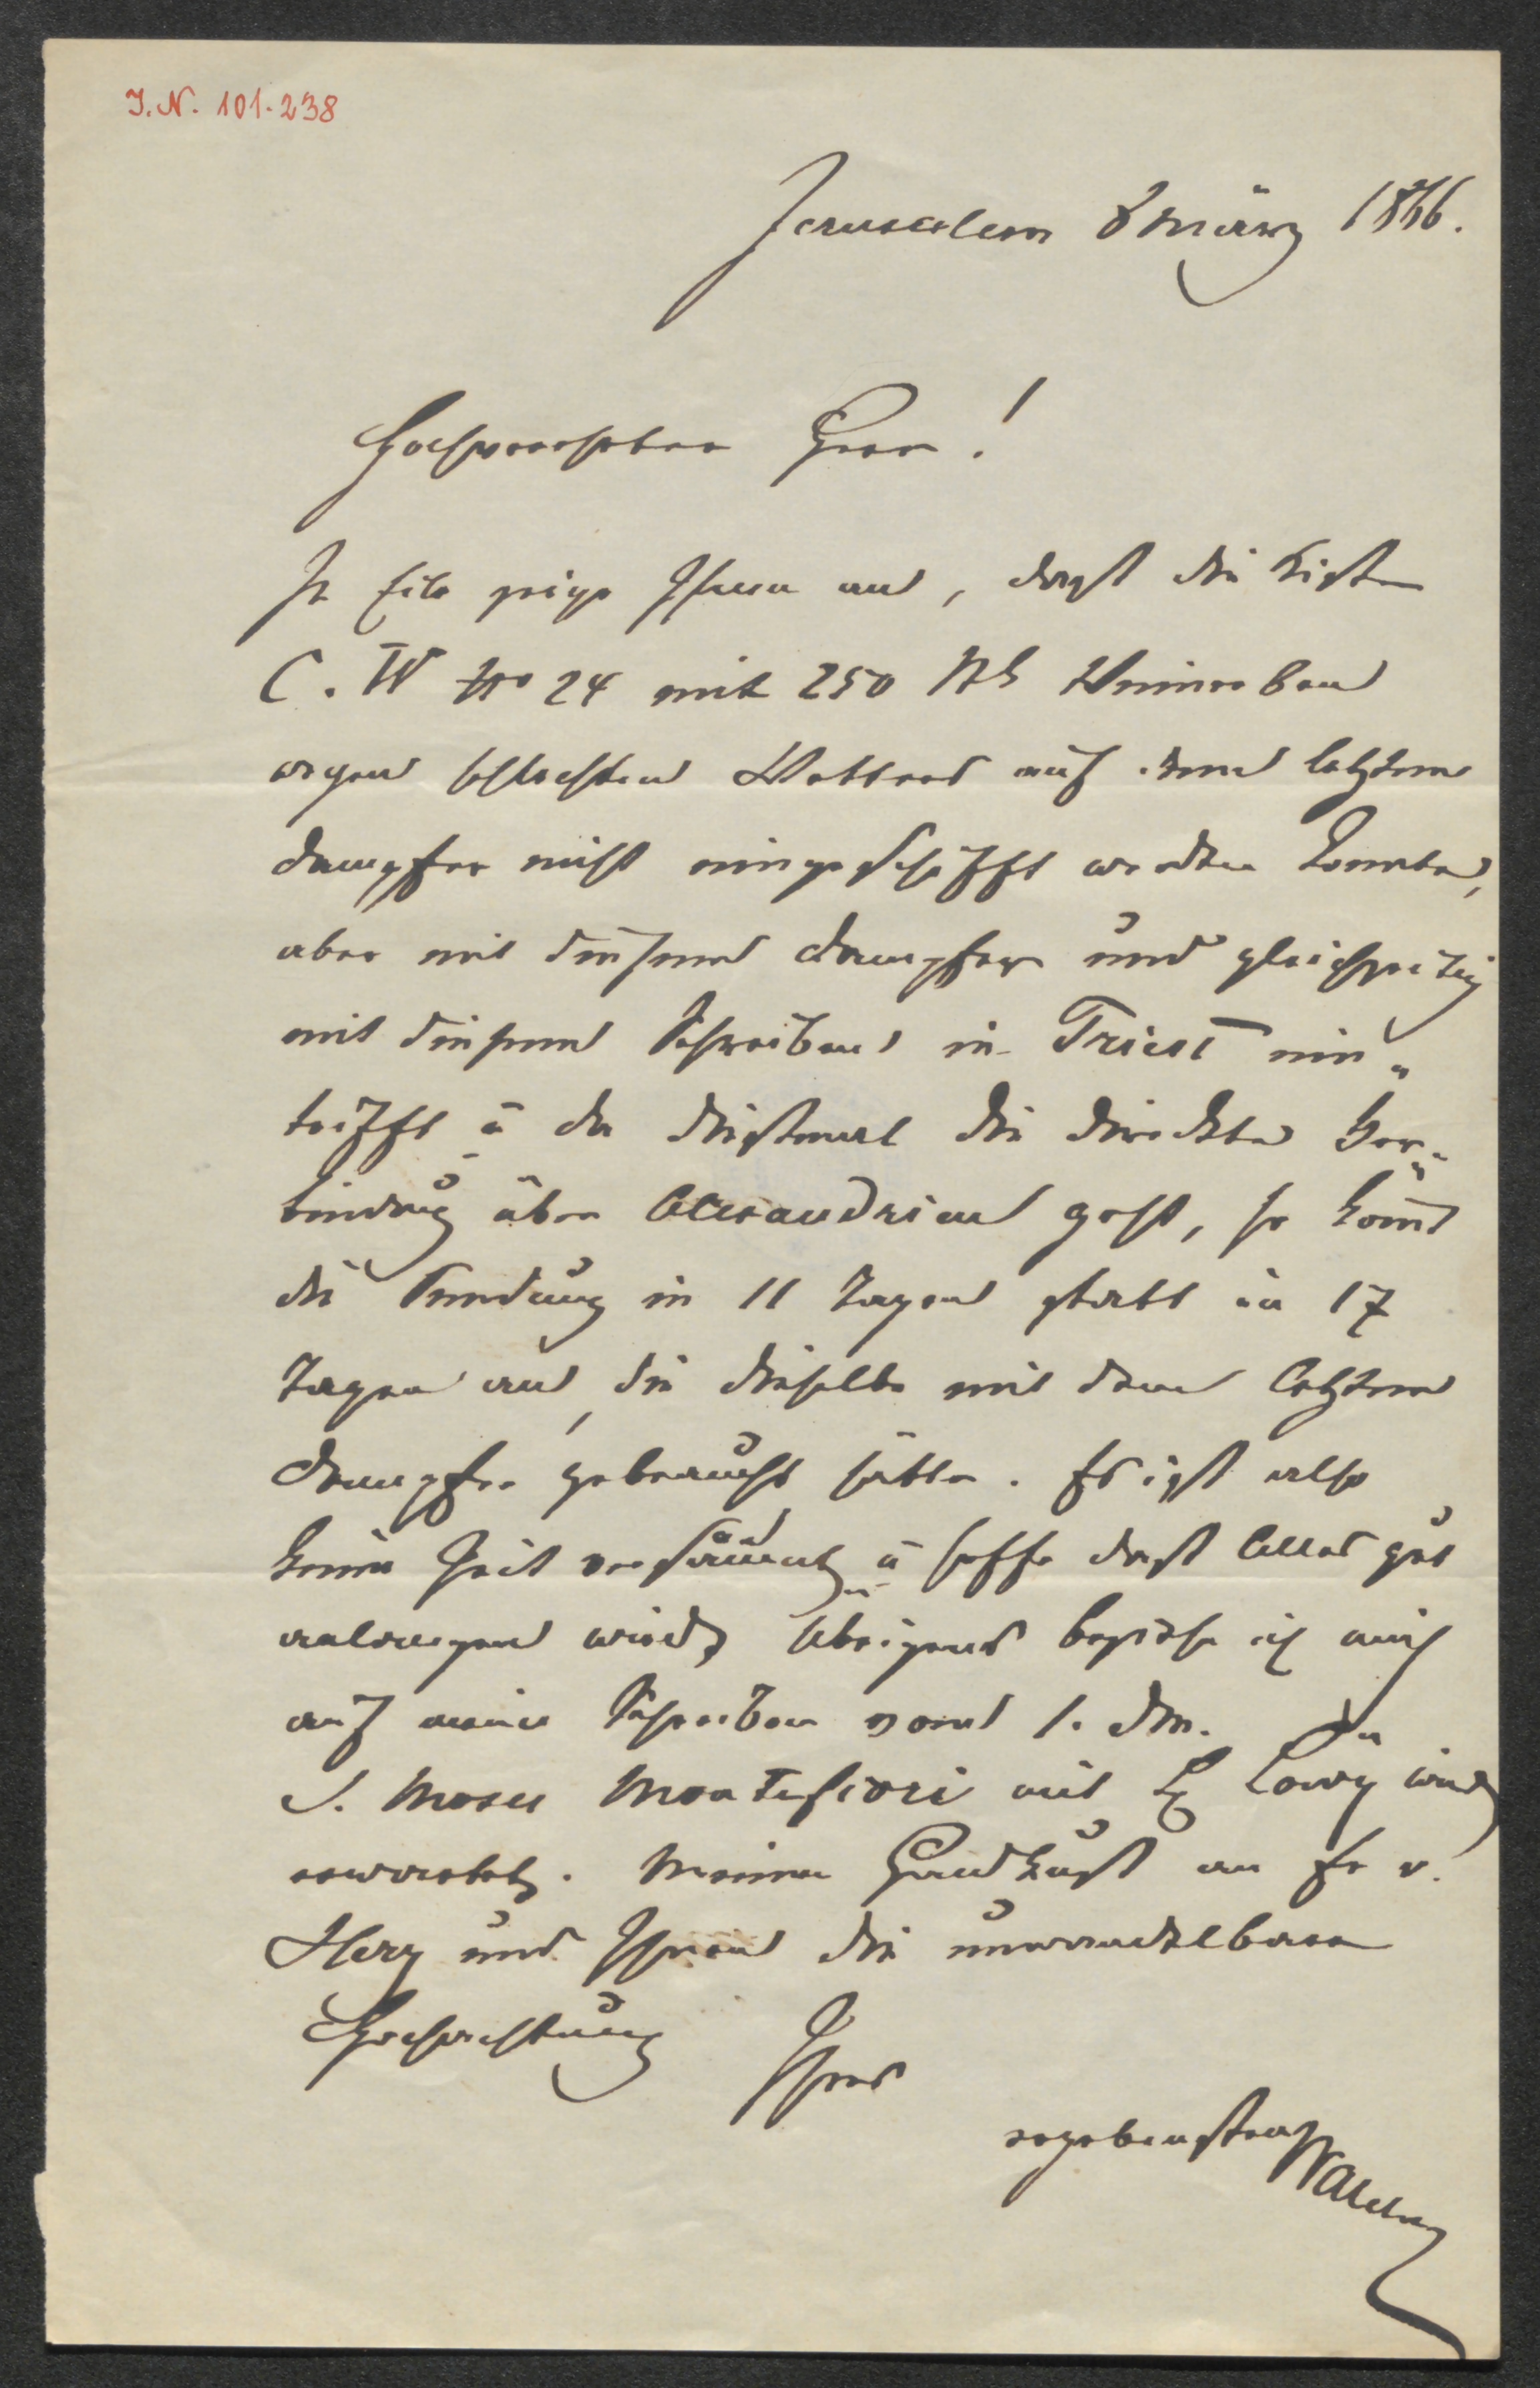 I.N. 101.238
Jerusalem 8 März 1866.
Hochverehrter Herr!
In Eile zeige Ihnen an, daß die Kiste
C. W No 24 mit 250 Weinreben
wegen schlechten Wetters auf dem letzten
Dampfer nicht eingeschifft werden konnte,
aber mit diesem Dampfer und gleichzeitig
mit diesem Schreiben in Triest ein„
trifft u da dießmal die direkte Ver„
bindung über Alexandrien geht, so komt
die Sendung in 11 Tagen statt in 17
Tagen an, die dieselbe mit dem letzten
Dampfer gebraucht hätte. Es ist also
keine Zeit versäumt, u hoffe daß Alles gut
anlangen wird, Übrigens beziehe ich mich
auf mein Schreiben vom 1. dM.
S. Moses Montefiori mit Löwy wird
erwartet. Meinen Handkuß an Fr v.
Herz und Ihnen die unwandelbare
Hochachtung
Ihres
ergebensten